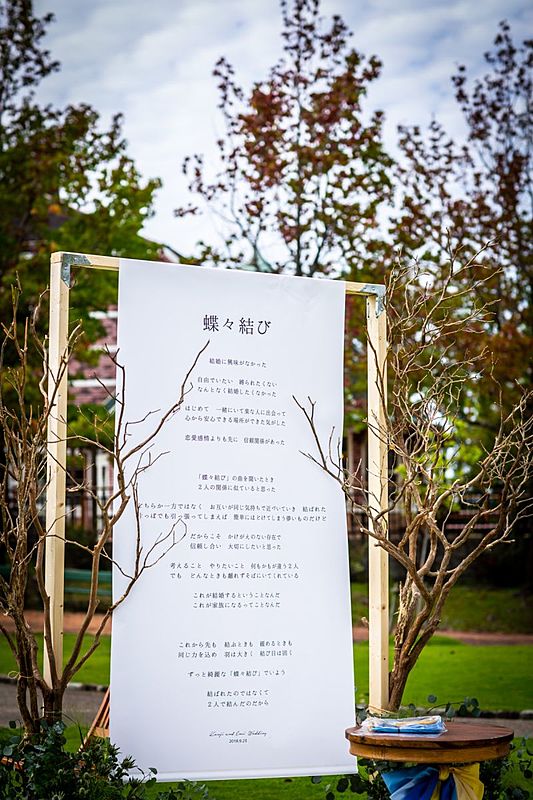 蝶々結び
結婚に興味がなかった
自由でいたい 縛られたくない
なんとなく結婚したくなかった
はじめて 一緒にいて楽な人に出会って
心から安心できる場所ができた気がした
恋愛感情よりも先に 信頼関係があった
「蝶々結び」の曲を聞いたとき
2人の関係に似ていると思った
どちらか一方ではなく お互いが同じ気持ちで近づいていき 結ばれた
っぱでも引っ張ってしまえば 簡単にほどけてしまう夢いものだけど
だからこそ かけがえのない存在で
信頼し合い 大切にしたいと思った
考えること やりたいこと 何もかもが違う2人
でも どんなときも離れずそばにいてくれている
これが結婚するということなんだ
これが家族になるってことなんだ
これから先も 結ぶときも 緩めるときも
同じ力を込め 羽は大きく 結び目は固く
ずっと綺麗な「蝶々結び」でいよう
結ばれたのではなくて
2人で結んだのだから
Wedding
2019.9.28